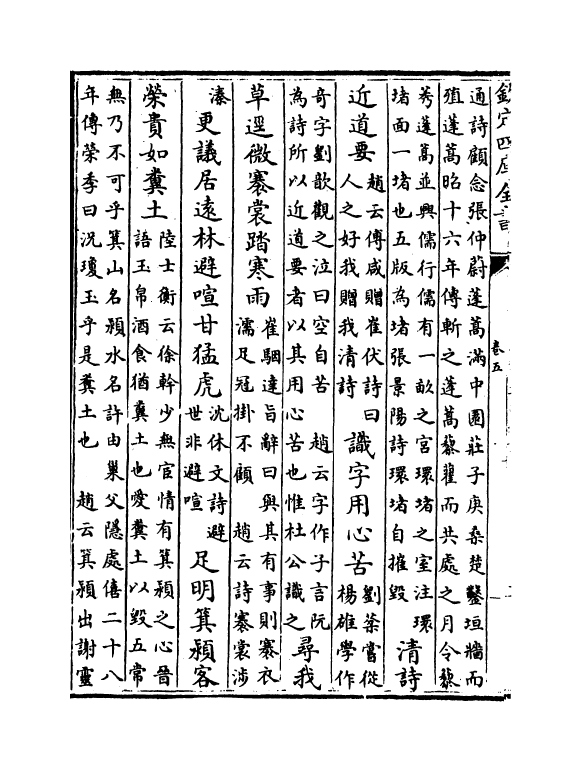 欽定四庫全書
卷五
通詩顧念張仲蔚蓬蒿滿中園莊子庚桑楚鑿垣牆而
殖蓬蒿昭十六年傳斬之蓬蒿藜藋而共處之月令藜
莠蓬蒿並興儒行儒有一畝之宮環堵之室注環
堵面一堵也五版為堵張景陽詩環堵自摧毀
清詩
近道要
趙云傅咸贈崔伏詩曰
人之好我贈我清詩
識字用心苦
劉棻嘗從
楊雄學作
奇字劉歆觀之泣曰空自苦　趙云字作子言阮
為詩所以近道要者以其用心苦也惟杜公識之
尋我
草逕微褰裳踏寒雨
崔駰達旨辭曰與其有事則褰衣
濡足冠掛不顧　趙云詩褰裳涉
溱
更議居遠林避喧甘猛虎
沈休文詩避
世非避喧
足明箕潁客
榮貴如糞土
陸士衡云徐幹少無官情有箕潁之心晉
語玉帛酒食猶糞土也愛糞土以毀五常
無乃不可乎箕山名潁水名許由巢父隱處僖二十八
年傳榮季曰況瓊玉乎是糞土也　趙云箕潁出謝靈